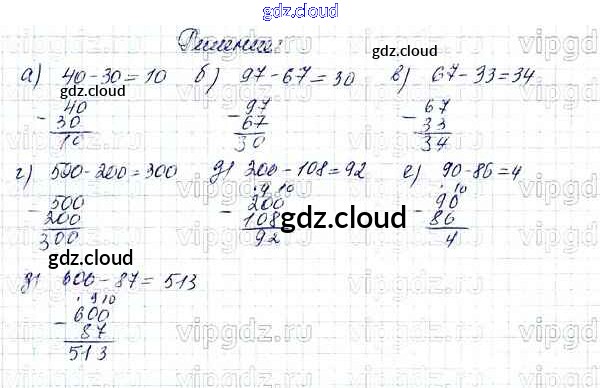 gdz.cloud
Решение:
gdz.cloud
а) 40-30=10 б) 97-67=30 в) 67-33=34
gdz.cloud
- 40 - 97 - 67
30 67 33
10 30 34
г) 500-200=300 д) 200-108=92 е) 90-86=4
. 9 10 . 10
- 500 - 200 - 90
200 108 86
300 92 4
gdz.cloud
gdz.cloud
gdz.cloud
600-87=513
. 9 10
- 600
87
513
vipgdz.ru